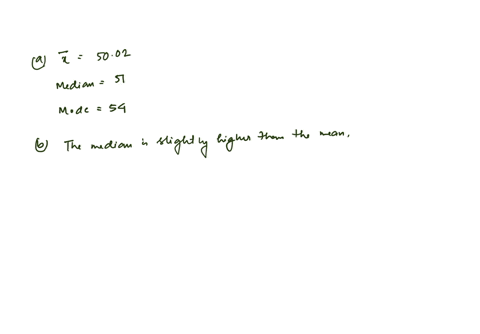 (a) x̄ = 50.02
Median = 51
Mode = 54
(b) The median is slightly higher than the mean.